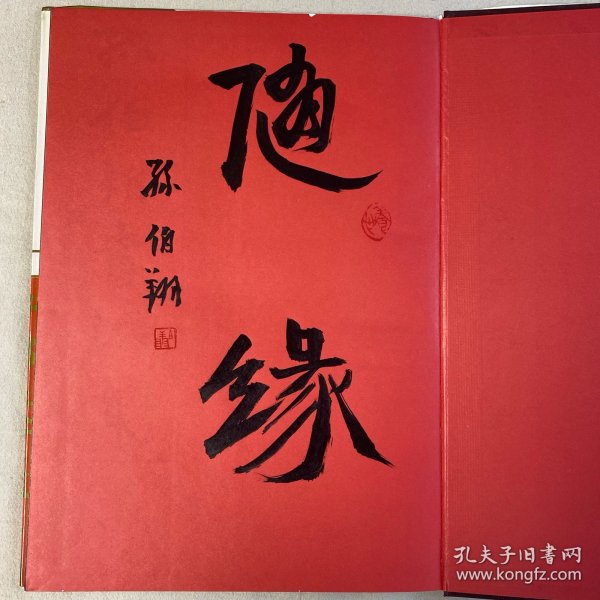 随缘
孙伯翔
孔夫子旧書网
www.kongfz.com